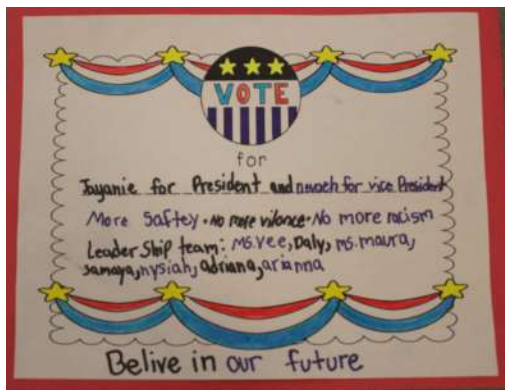 VOTE
for
Jayanie for President and nevaeh for vice President
More Saftey • No more vilance • No more racism
Leader Ship team: Ms.vee, Daly, ms.maura,
samaya, nysiah, adriana, arianna
Belive in our future